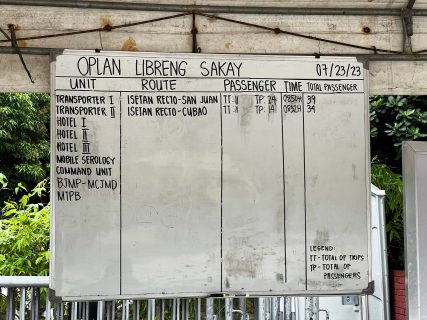 OPLAN LIBRENG SAKAY 07/23/23
UNIT ROUTE PASSENGER TIME TOTAL PASSENGER
TRANSPORTER I ISETAN RECTO-SAN JUAN TT: II TP: 24 39
TRANSPORTER II ISETAN RECTO-CUBAO TT: II TP: 19 34
HOTEL I
HOTEL II
HOTEL III
MOBILE SEROLOGY
COMMAND UNIT
BJMP-MCJMD
MTPB
LEGEND:
TT - TOTAL OF TRIPS
TP - TOTAL OF PASSENGERS